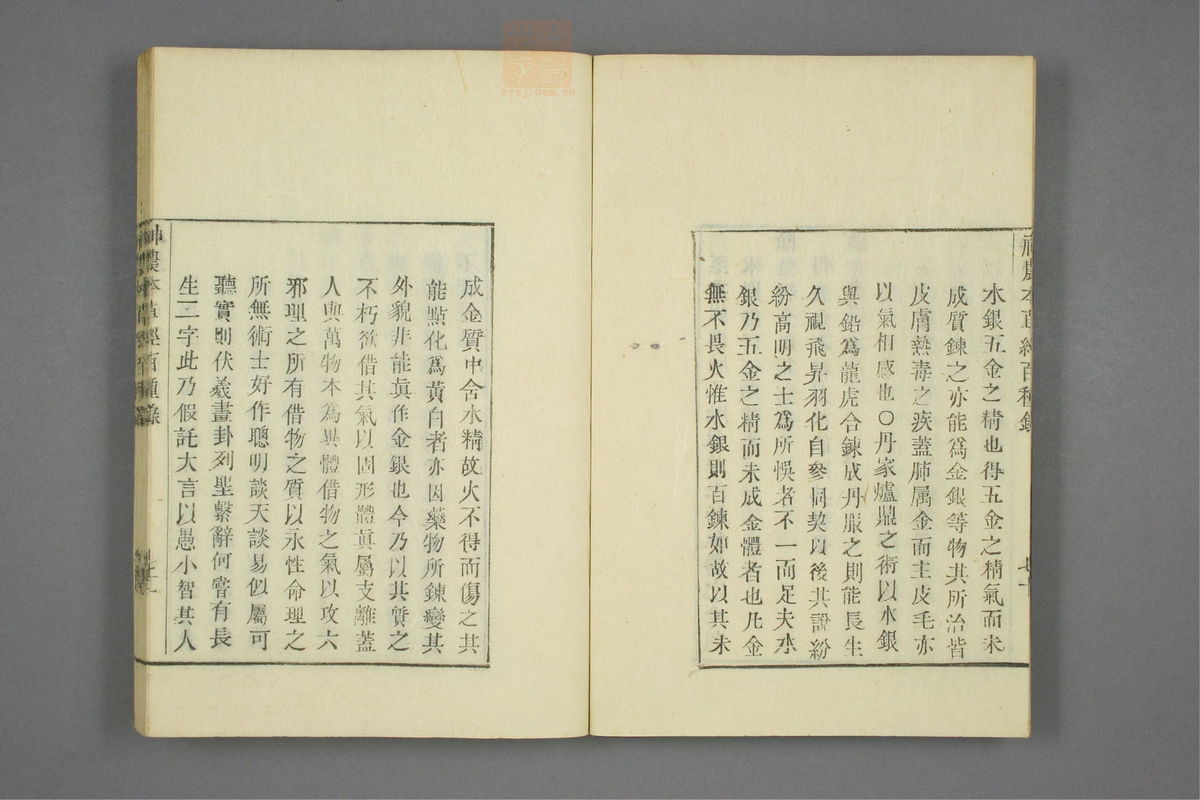 神農本草經百種錄
七十
水銀五金之精也得五金之精氣而未
成質鍊之亦能爲金銀等物其所治皆
皮膚熱毒之疾蓋肺属金而主皮毛亦
以氣相感也○丹家爐鼎之術以水銀
與鉛爲龍虎合鍊成丹服之則能長生
久視飛昇羽化自參同契以後其說紛
紛高明之士爲所悞者不一而足夫水
銀乃五金之精而未成金體者也凡金
無不畏火惟水銀則百鍊如故以其未
成金質中含水精故火不得而傷之其
能點化爲黃白者亦因藥物所鍊變其
外貌非能眞作金銀也今乃以其質之
不朽欲借其氣以固形體眞屬支離蓋
人與萬物本爲異體借物之氣以攻六
邪理之所有借物之質以永性命理之
所無術士好作聰明談天談易似屬可
聽實則伏羲畫卦列聖繫辭何嘗有長
生二字此乃假託大言以愚小智其人
神農本草經百種錄
zysj.com.cn